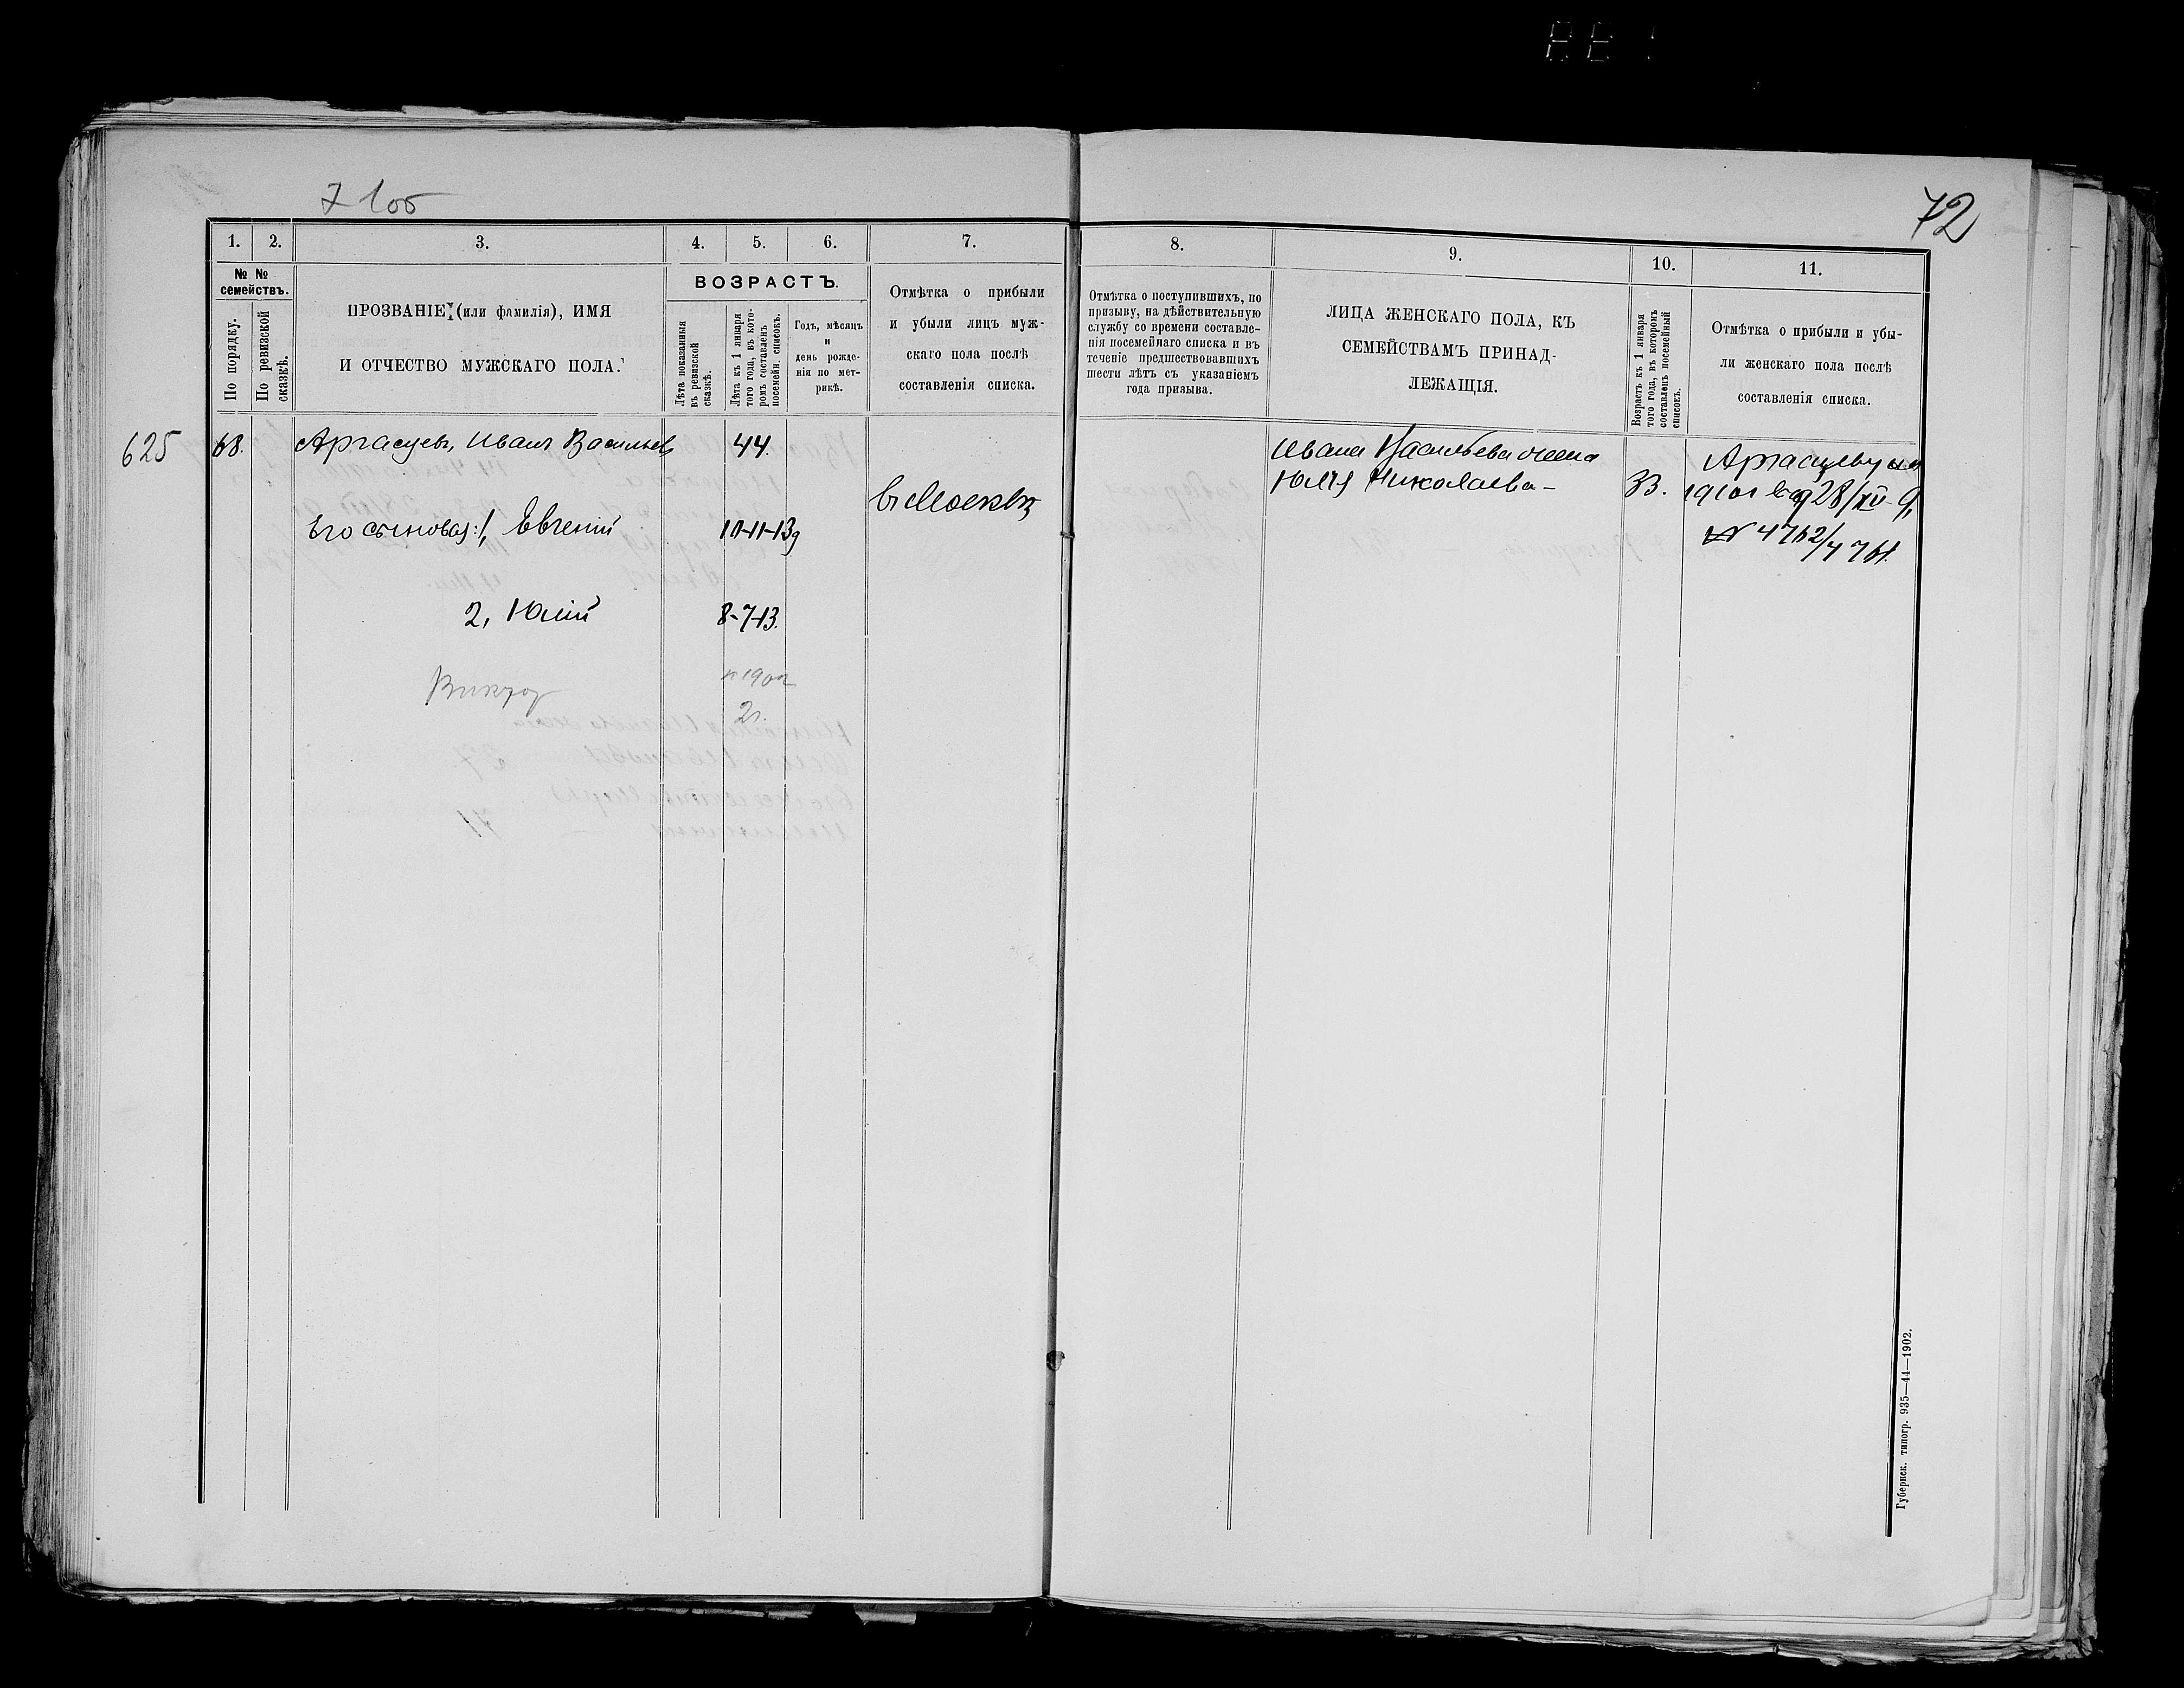 71об
72
1.
2.
3.
4.
5.
6.
7.
8.
9.
10.
11.
№ №
семействъ.
По порядку.
По ревизской
сказкѣ.
ПРОЗВАНІЕ (или фамилія), ИМЯ
И ОТЧЕСТВО МУЖСКАГО ПОЛА.
ВОЗРАСТЪ.
Лѣта показанныя
въ ревизской
сказкѣ.
Лѣта къ 1 января
того года, въ кото-
ромъ составленъ
посемейн. списокъ.
Годъ, мѣсяцъ
и
день рожде-
нія по мет-
рикѣ.
Отмѣтка о прибыли
и убыли лицъ муж-
скаго пола послѣ
составленія списка.
Отмѣтка о поступившихъ, по
призыву, на дѣйствительную
службу со времени составле-
нія посемейнаго списка и въ
теченіе предшествовавшихъ
шести лѣтъ съ указаніемъ
года призыва.
ЛИЦА ЖЕНСКАГО ПОЛА, КЪ
СЕМЕЙСТВАМЪ ПРИНАД-
ЛЕЖАЩІЯ.
Возрастъ къ 1 января
того года, въ которомъ
составленъ посемейный
списокъ.
Отмѣтка о прибыли и убы-
ли женскаго пола послѣ
составленія списка.
625
68.
Иванъ Васильевъ
44.
Его сыновья: 1, Евгеній
въ Москвѣ
2, Юлій
8-7-13.
Викторъ
1902
2г.
Ивана Васильева жена
Юлія Николаева -
33.
28/XII
№ 4762/4761.
Губернск. типогр. 935—44—1902.